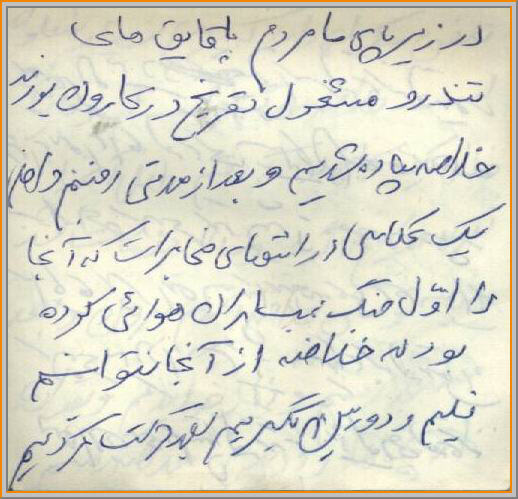 در زیر پای ما مردم با قایق های
تندرو مشغول تفریح در کارون بودند
خلاصه پیاده شدیم و بعد از مدتی رفتیم
یک عکاسی در انتهای مخابرات که آنجا
را اوّل جنگ بمباران هوائی کرده
بودند خلاصه از آنجا نتوانستم
فیلم و دوربین بگیریم بعد حرکت کردیم